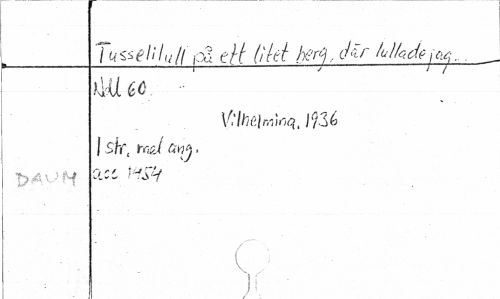 Tusselilull på ett litet berg, där lullade jag...
NdL 60
Vilhelmina, 1936
1 str, mel ang.
DAUM acc 1454